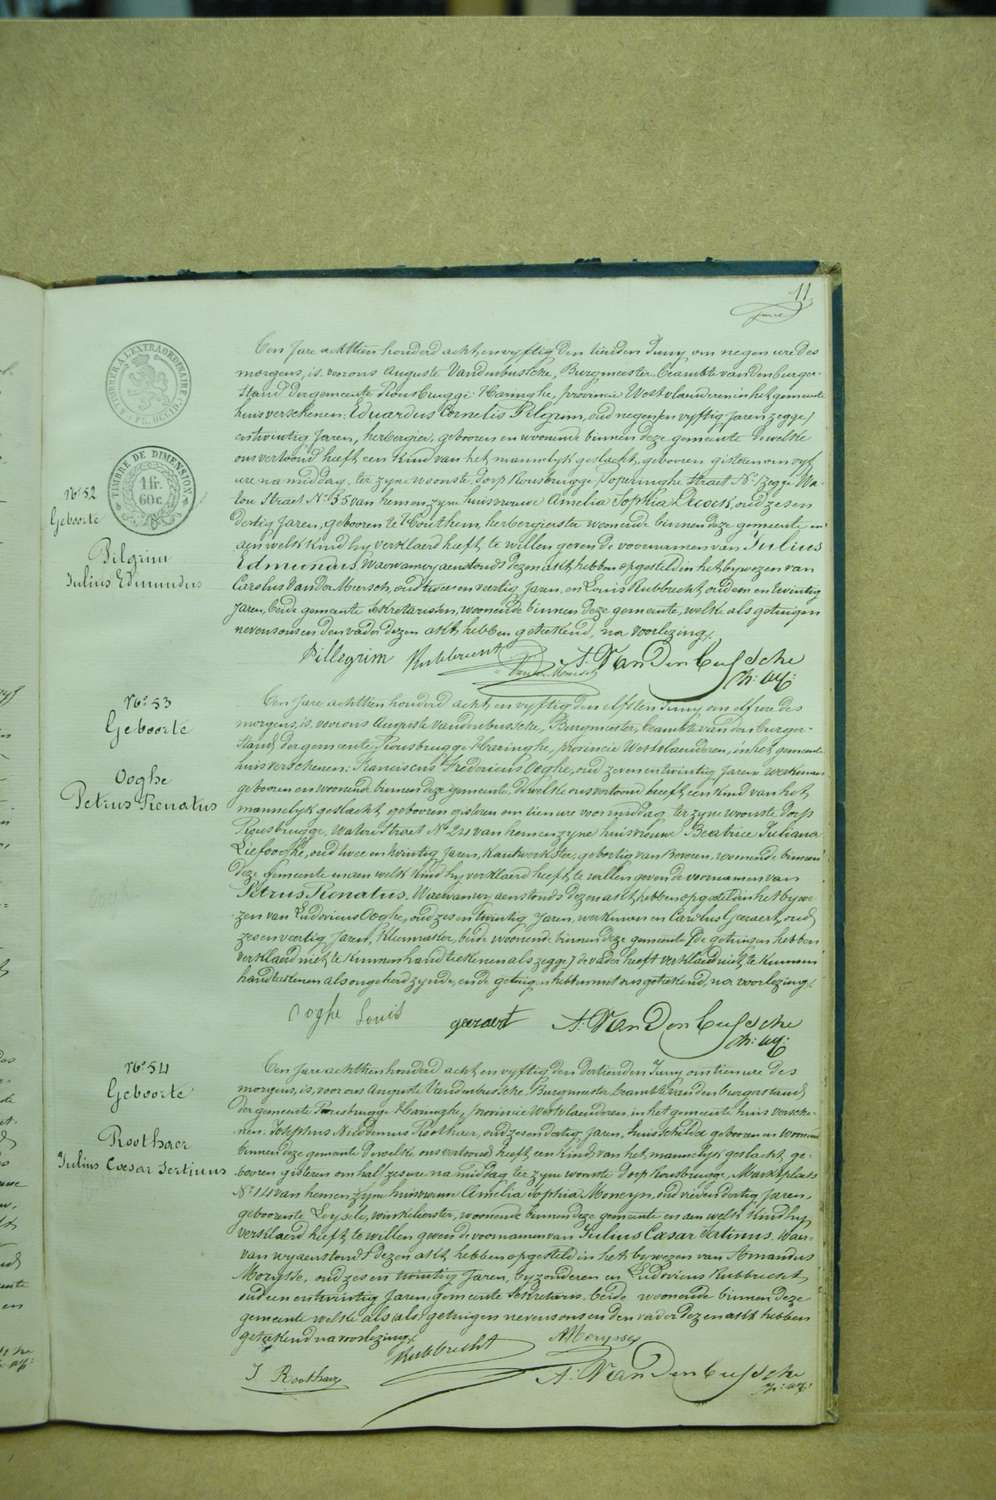 11
TIMBRE DE DIMENSION
1 fr.
60 c.
N° 52
Geboorte
Pilgrim
Julius Edmundus
Een Jare achttien honderd acht en vyftig den tienden Juny om negen ure des
morgens, is voor ons Auguste Vandenbussche, Burgmeester Beambte van den burger-
stand der gemeente Rousbrugge Haringhe, provincie Westvlaanderen in het gemeente
huis verschenen: Eduardus Cornelis Pilgrim, oud negen en vyftig Jaren zegge)
en twintig Jaren, herbergier, geboren en woonende binnen deze gemeente dewelke
ons vertoond heeft een kind van het mannelyk geslacht, geboren gisteren om vyf
ure na middag, ter zyne woonste, dorp Rousbrugge Poperinghe Straet N° zegge Wa-
tou Straet N° 35 van hem en zyne huisvrouw Amelia Sophia Decock, oud zes en
dertig Jaren, geboren te Houthem, herbergierster woonende binnen deze gemeente en
aen welk kind hy verklaerd heeft te willen geven de voornamen van Julius
Edmundus. Waervan wy aenstonds dezen akt hebben opgesteld in het bywezen van
Carolus Van der Meersch, oud twee en veertig Jaren, en Louis Rubbrecht, oud een en twintig
Jaren, beide gemeente sekretarissen, woonende binnen deze gemeente, welke als getuigen
nevens ons en den vader dezen akt hebben geteekend, na voorlezing.
Pillegrim Rubbrecht A. VanDenbussche
N° 53
Geboorte
Ooghe
Petrus Renatus
Een Jare achttien honderd acht en vyftig den elfsten Juny om elf ure des
morgens, is voor ons Auguste Vandenbussche, Burgmeester, Beambte van den burger-
stand der gemeente Rousbrugge Haringhe, provincie Westvlaanderen, in het gemeente
huis verschenen: Franciscus Fredericus Ooghe, oud zeven en twintig Jaren werkman
geboren en woonende binnen deze gemeente, dewelke ons vertoond heeft een kind van het
mannelyk geslacht geboren gisteren om tien ure voormiddag ter zyne woonste dorp
Rousbrugge, Watou Straet N° 24 van hem en zyne huisvrouw Beatrice Juliana
Liefooghe, oud twee en twintig Jaren, kantwerkster, geboortig van Beveren, woonende binnen
deze Gemeente en aen welk kind hy verklaerd heeft te willen geven de voornamen van
Petrus Renatus. Waervan wy aenstonds dezen akt hebben opgesteld in het bywe-
zen van Ludovicus Ooghe, oud zes en twintig Jaren, werkman en Carolus Geeraert, oud
zes en veertig Jaren, kleermaker, beide woonende binnen deze gemeente (de getuigen hebben
verklaerd niet te kunnen hand teekenen als zegge) de vader heeft verklaerd niet te kunnen
handteekenen als ongeleerd zynde, en de getuigen hebben met ons geteekend, na voorlezing.
Ooghe Louis geeraert A. VanDenbussche
N° 54
Geboorte
Roothaer
Julius Caesar Tertinus
Een Jare achttien honderd acht en vyftig den dertienden Juny om tien ure des
morgens, is, voor ons Auguste Vandenbussche, Burgmeester, beambte van den burgerstand
der gemeente Rousbrugge Haringhe, provincie Westvlaanderen, in het gemeente huis versche-
nen: Josephus Roothaer, oud zes en dertig Jaren, huisschilder geboren en woonende
binnen deze gemeente dewelke ons vertoond heeft een kind van het mannelyk geslacht, ge-
boren gisteren om half zes ure na middag ter zyne woonste dorp Rousbrugge, Marktplaets
N° 14 van hem en zyne huisvrouw Amelia Sophia Moneyn, oud vier en dertig Jaren,
geboren te Leysele, winkelierster, woonende binnen deze gemeente en aen welk kind hy
verklaerd heeft te willen geven de voornamen van Julius Caesar Tertinus. Waer-
van wy aenstonds dezen akt hebben opgesteld in het bywezen van Amandus
Morysse, oud zes en twintig Jaren, byzonderen en Ludovicus Rubbrecht,
oud een en twintig Jaren, gemeente sekretaris, beide woonende binnen deze
gemeente welke als als getuigen nevens ons en den vader dezen akt hebben
geteekend na voorlezing.
Rubbrecht A Morysse
J Roothaer A. VanDenbussche